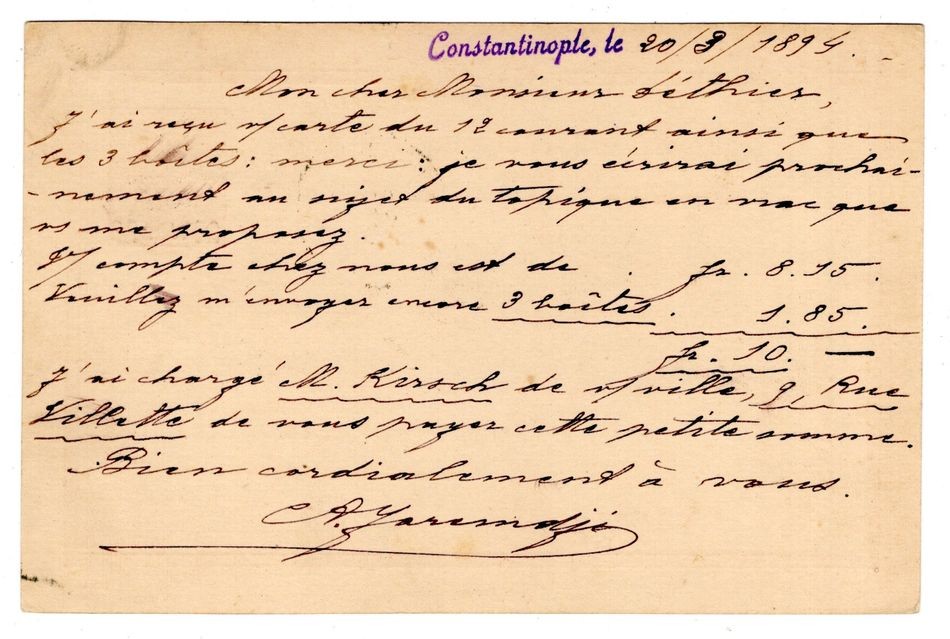 Constantinople, le 20/3/1894.
Mon cher Monsieur Léthier,
J'ai reçu v/ carte du 12 courant ainsi que
les 3 boîtes: merci: je vous écrirai prochai-
-nement au sujet du topique en vrac que
vs me proposez.
V/ compte chez nous est de . fr. 8.15.
Veuillez m'envoyer encore 3 boîtes. 1.85.
fr. 10. —
J'ai chargé M. Kirsch de v/ ville, 9, Rue
Villette de vous payer cette petite somme.
Bien cordialement à vous.